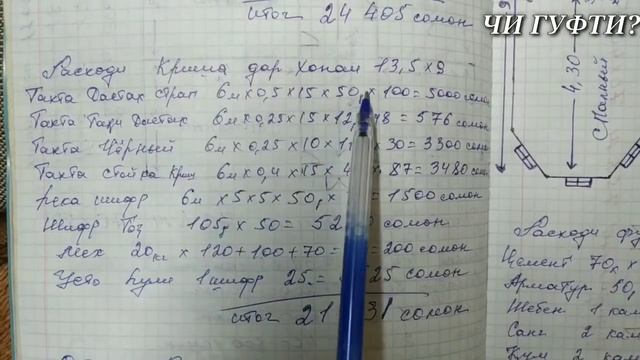 итог 24 405 сомон
ЧИ ГУФТИ?
Расходи Криша дар хонаи 13,5×9
Тахта Дастак страп 6м×0,5×15×50,×100=5000 сомон
Тахта Тази Дастак 6м×0,25×15×12, 48=576 сомон
Тахта Чёрный 6м×0,25×10×11 ×30=3300 сомон
Тахта стойка Криш 6м×0,4×15×4 ×87=3480 сомон
река шифр 6м×5×5×50,× =1500 сомон
Шифр Тоз 105,×50=52 сомон
Мех 20кг×120+100+70= =200 сомон
Усто Кули 1 шифр 25= 25 сомон
итог 21 31 сомон
4,30
Малный
Расходи
Цемент 70,×
Арматур 50,
Шебен 1 кам
Санг 2 кам
Кум 2 кам